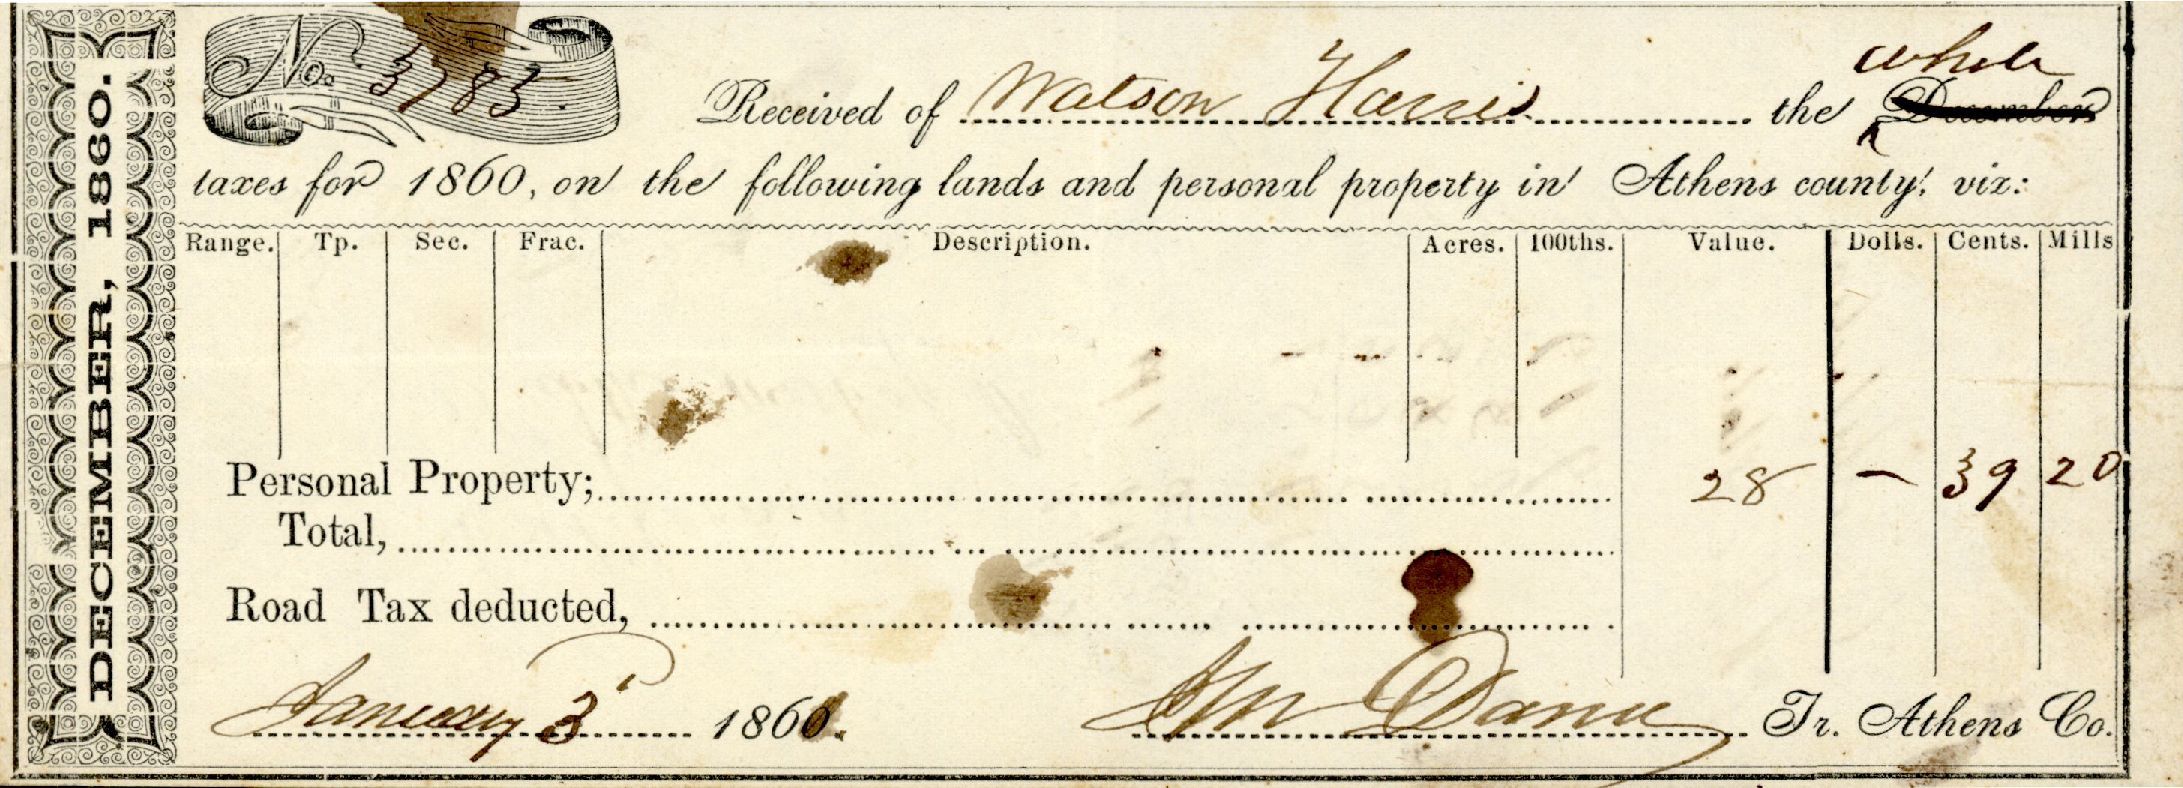 DECEMBER, 1860.
No. 3783.
Received of Watson Harris the whole December
taxes for 1860, on the following lands and personal property in Athens county, viz:
Range. Tp. Sec. Frac. Description. Acres. 100ths. Value. Dolls. Cents. Mills
Personal Property; 28 — 39 20
Total,
Road Tax deducted,
January 3 1861. Dana Tr. Athens Co.